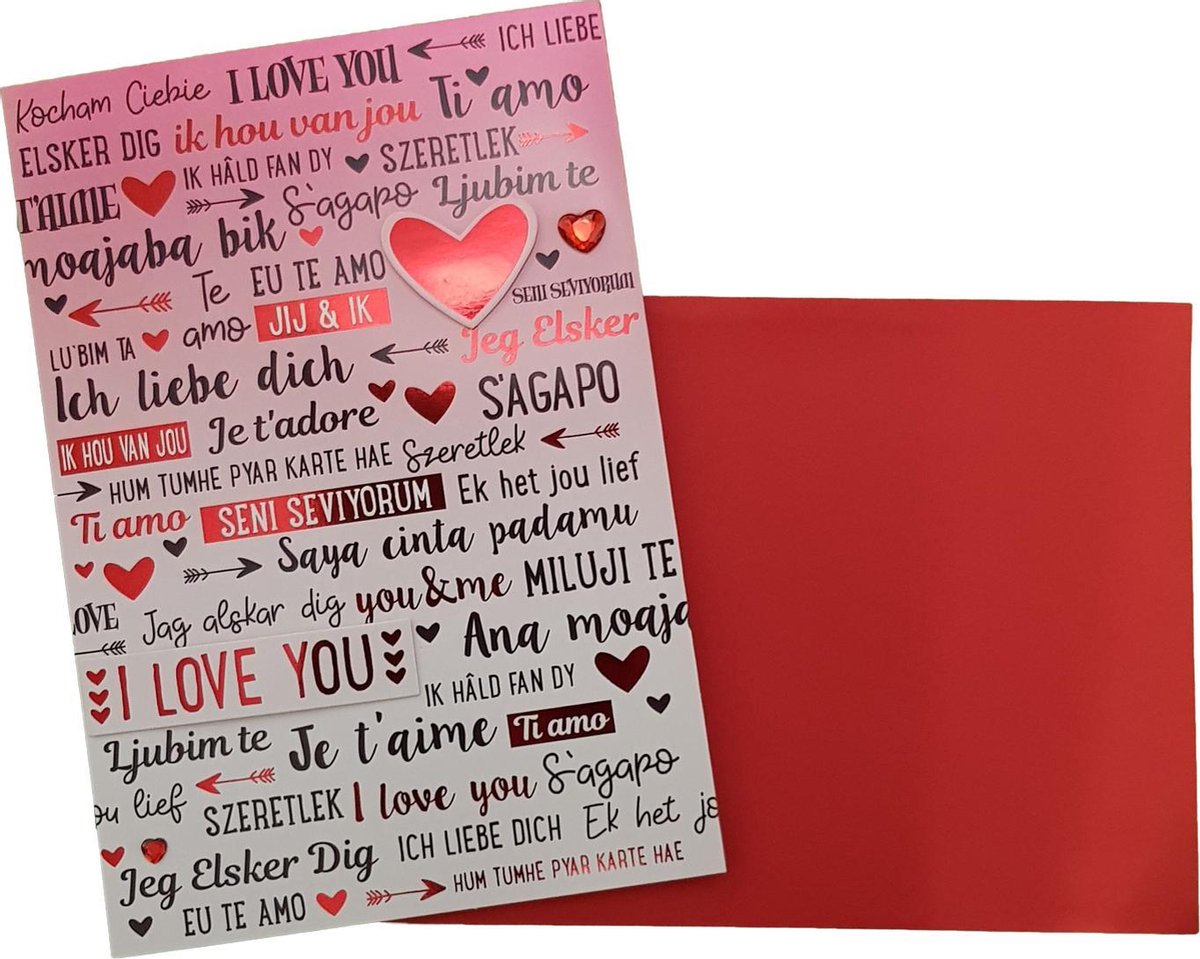 Kocham Ciebie I LOVE YOU ICH LIEBE
ELSKER DIG ik hou van jou Ti amo
T'AIME IK HÂLD FAN DY SZERETLEK
moajaba bik S`agapo Ljubim te
Te EU TE AMO SENI SEVIYORUM
LU`BIM TA amo JIJ & IK Jeg Elsker
Ich liebe dich
IK HOU VAN JOU Je t'adore S'AGAPO
HUM TUMHE PYAR KARTE HAE Szeretlek
Ti amo SENI SEVIYORUM Ek het jou lief
Saya cinta padamu
LOVE Jag alskar dig you&me MILUJI TE
I LOVE YOU Ana moaja
IK HÂLD FAN DY
Ljubim te Je t'aime Ti amo
ou lief SZERETLEK I love you S`agapo
Jeg Elsker Dig ICH LIEBE DICH Ek het jo
EU TE AMO HUM TUMHE PYAR KARTE HAE